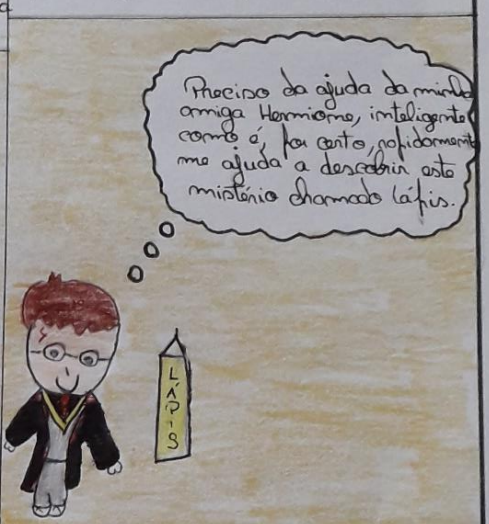 Preciso da ajuda da minha
amiga Hermione, inteligente
como é, por certo, rapidamente
me ajuda a descobrir este
mistério chamado lápis.
LÁPIS